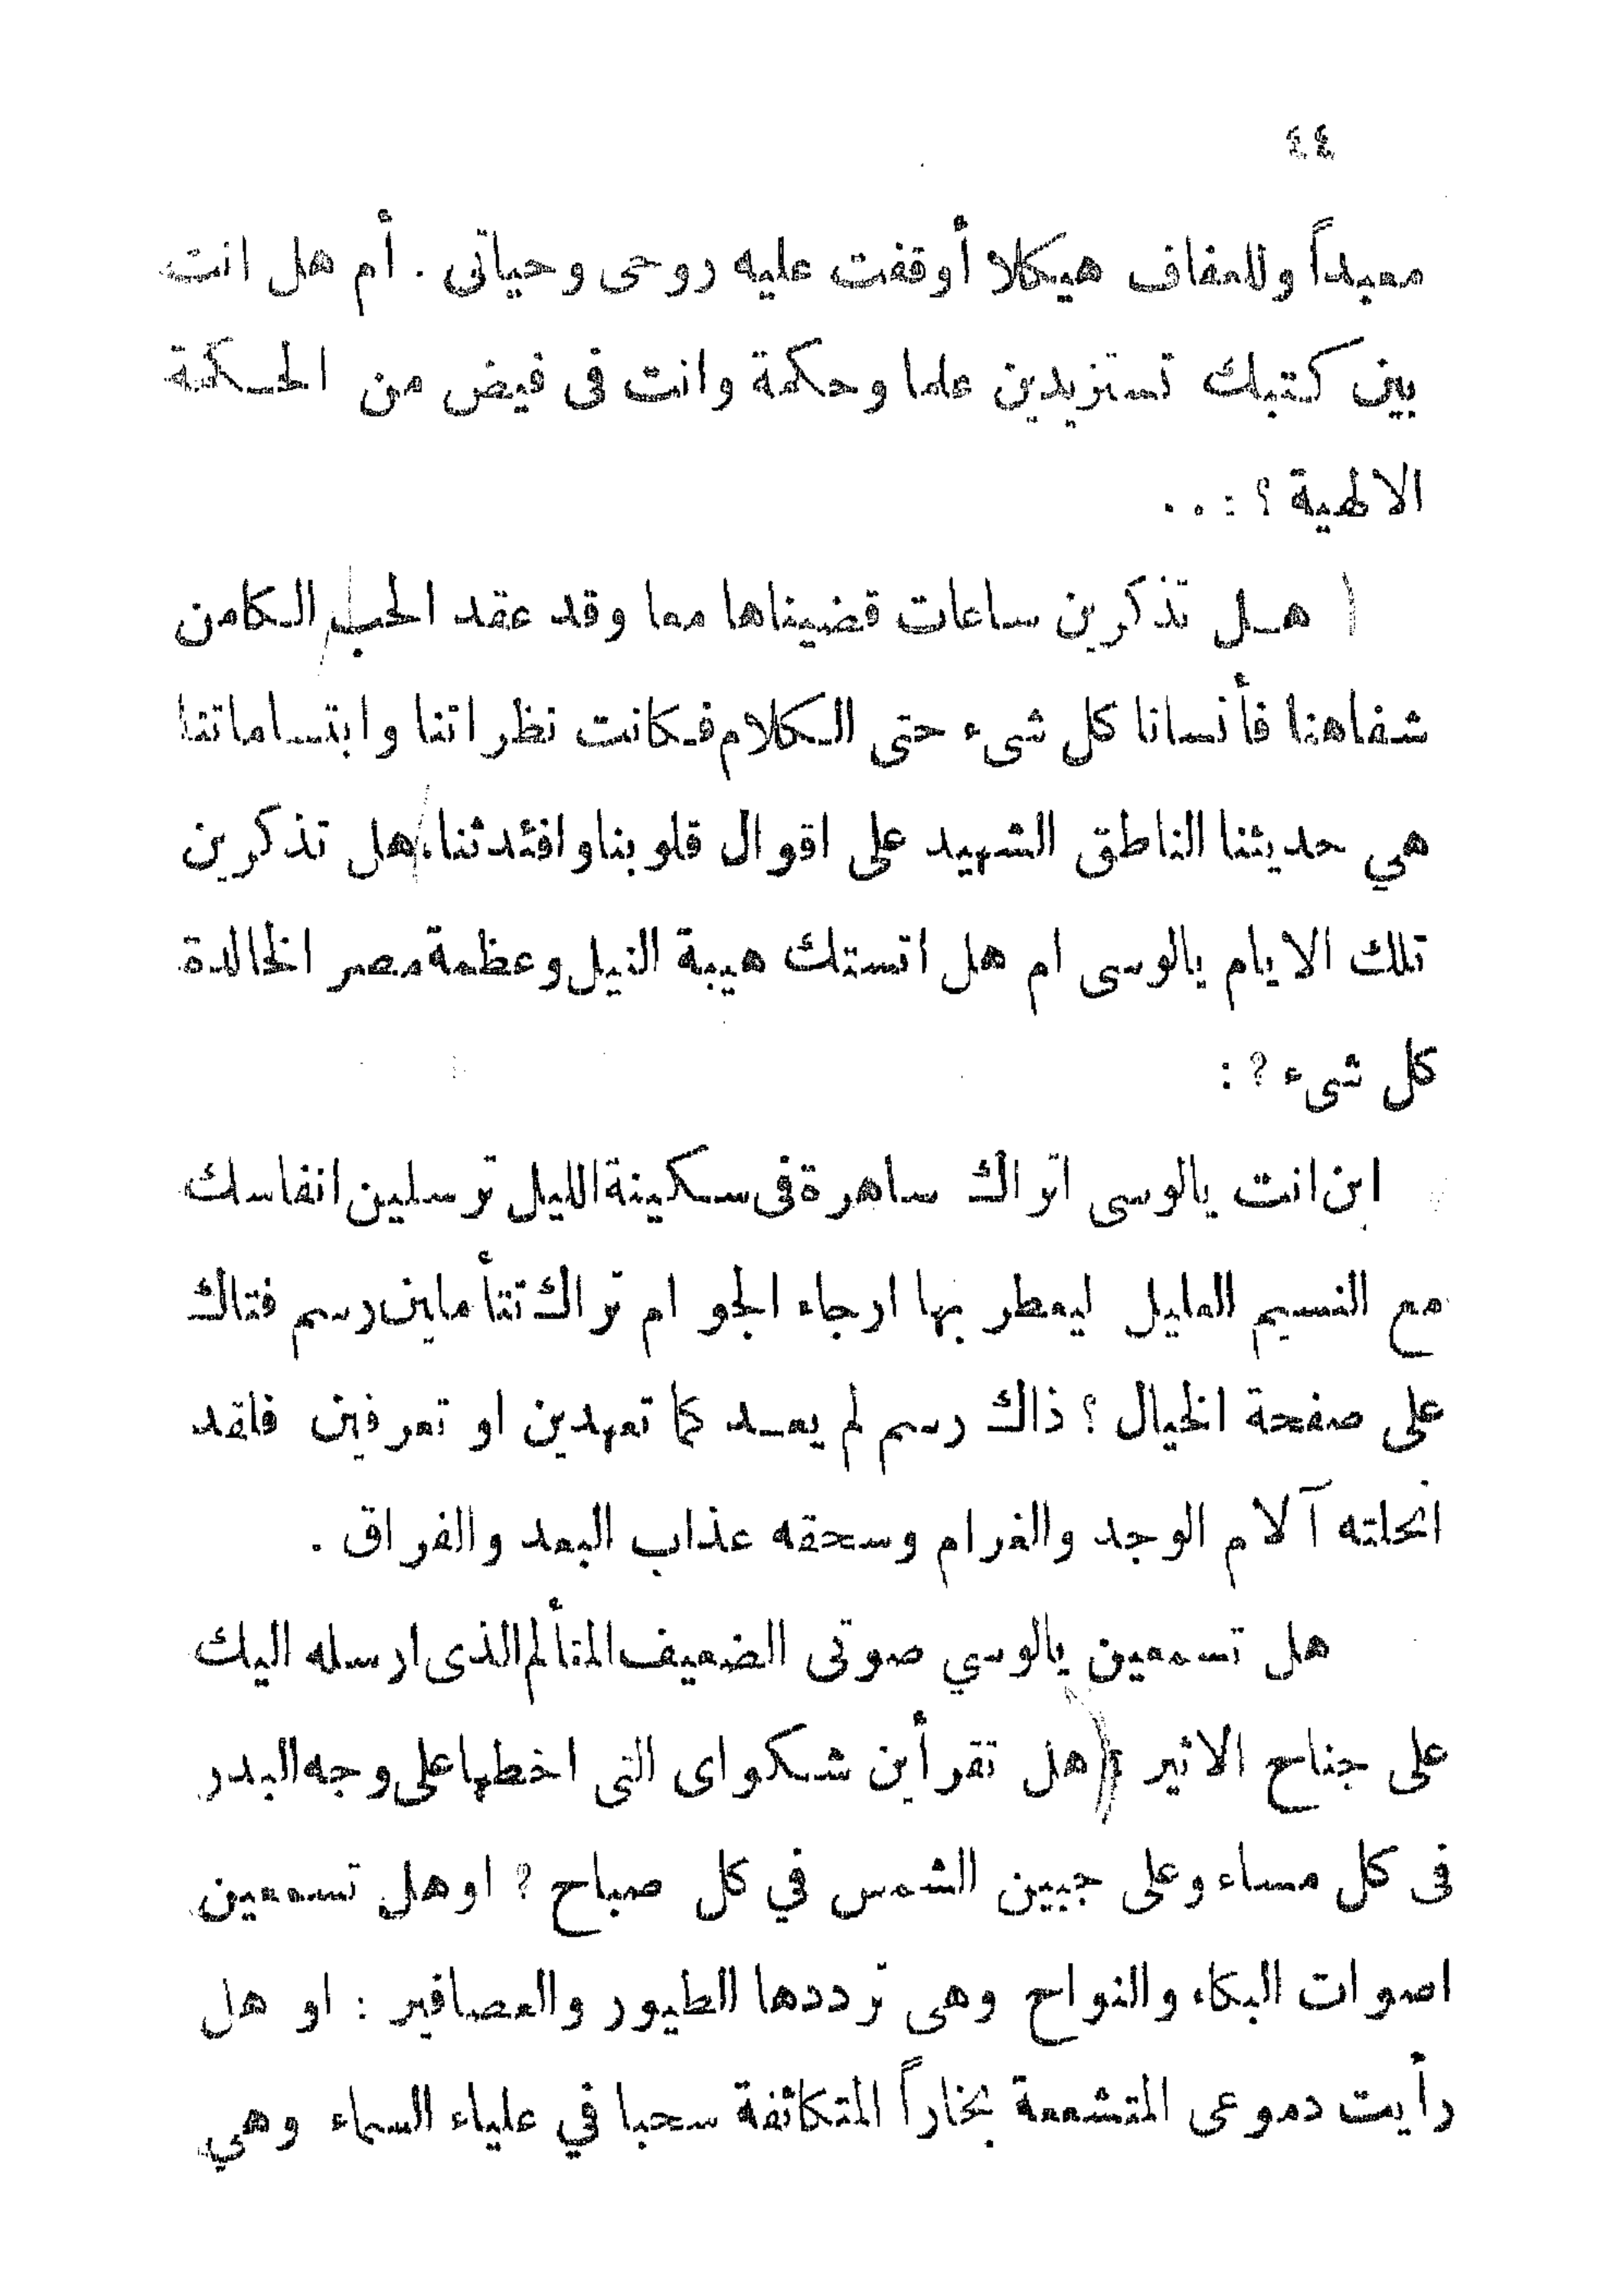 ٤٤
معبداً وللعفاف هيكلا أوقفت عليه روحى وحياتى . أم هل انت
بين كتبك تستزيدين علما وحكمة وانت فى فيض من الحكمة
الالهية ؟ : . .
هل تذكرين ساعات قضيناها معا وقد عقد الحب الكامن
شفاهنا فأنسانا كل شىء حتى الكلام فكانت نظراتنا وابتساماتنا
هي حديثنا الناطق الشهيد على اقوال قلوبنا وافئدثنا، هل تذكرين
تلك الايام يالوسى ام هل انستك هيبة النيل وعظمة مصر الخالدة
كل شىء ? :
اين انت يالوسى اتراك ساهرة فى سكينة الليل ترسلين انفاسك
مع النسيم العليل ليعطر بها ارجاء الجو ام تراك تتأملين رسم فتاك
على صفحة الخيال ؟ ذاك رسم لم يعد كما تعهدين او تعرفين فلقد
انحلته آلام الوجد والغرام وسحقه عذاب البعد والفراق .
هل تسمعين يالوسي صوتى الضعيف المتألم الذى ارسله اليك
على جناح الاثير ؟ هل تقرأين شكواى التى اخطها على وجه البدر
فى كل مساء وعلى جبين الشمس في كل صباح ? او هل تسمعين
اصوات البكاء والنواح وهى ترددها الطيور والعصافير : او هل
رأيت دموعى المتشععة بخاراً المتكاثفة سحبا في علياء السماء وهي